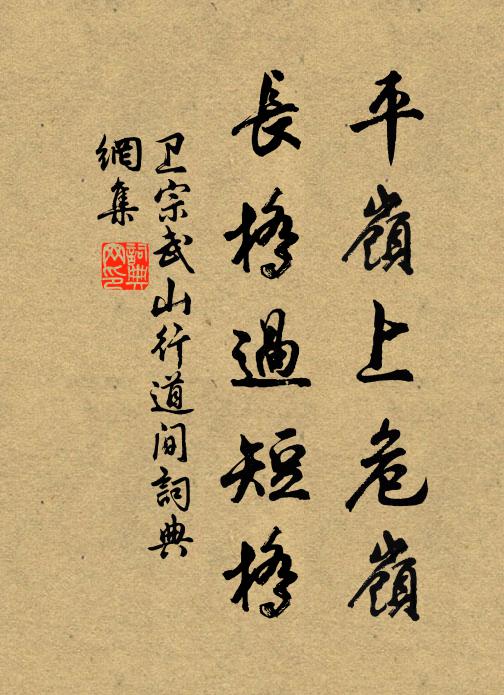 平嶺上危嶺
長橋過短橋
卫宗武山行道间詞典
網集
詞典
网印